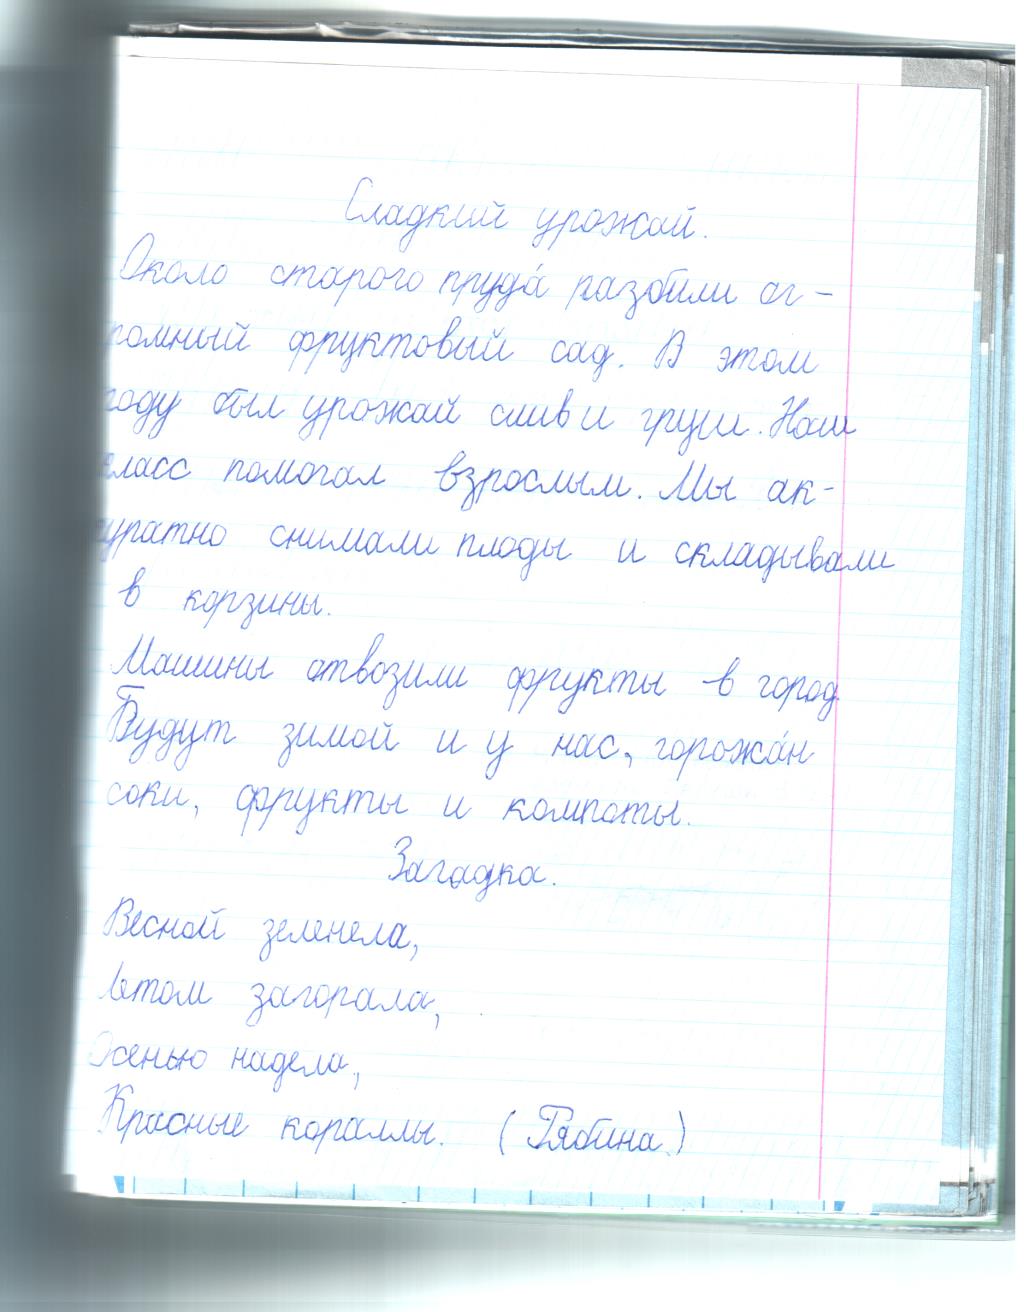 Сладкий урожай.
Около старого пруда́ разбили ог-
ромный фруктовый сад. В этом
году был урожай слив и груш. Наш
класс помогал взрослым. Мы ак-
куратно снимали плоды и складывали
в корзины.
Машины отвозили фрукты в город.
Будут зимой и у нас, горожа́н
соки, фрукты и компоты.
Загадка.
Весной зеленела,
Летом загорала,
Осенью надела,
Красные кораллы. (Рябина.)